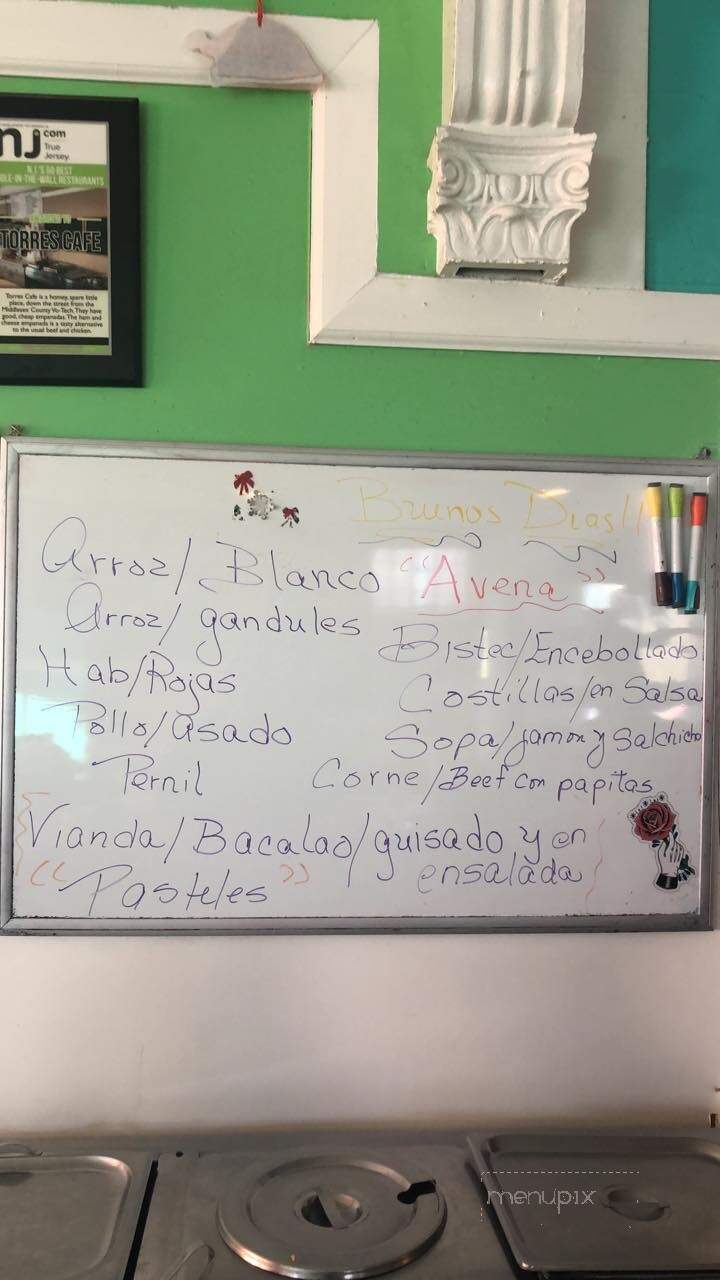 nj.com
True
Jersey.
N.J.'S 50 BEST
OLE-IN-THE-WALL RESTAURANTS
TORRES CAFE
Torres Cafe is a homey, spare little
place, down the street from the
Middlesex County Vo-Tech. They have
good, cheap empanadas. The ham and
cheese empanada is a tasty alternative
to the usual beef and chicken.
Brunos Dias!!
Arroz/ Blanco
"Avena"
Arroz/ gandules
Bistec/Encebollado
Hab/Rojas
Costillas/en Salsa
Pollo/asado
Sopa/jamon y Salchicho
Pernil
Corne/Beef con papitas
Vianda/Bacalao/guisado y en
ensalada
"Pasteles"
menupix